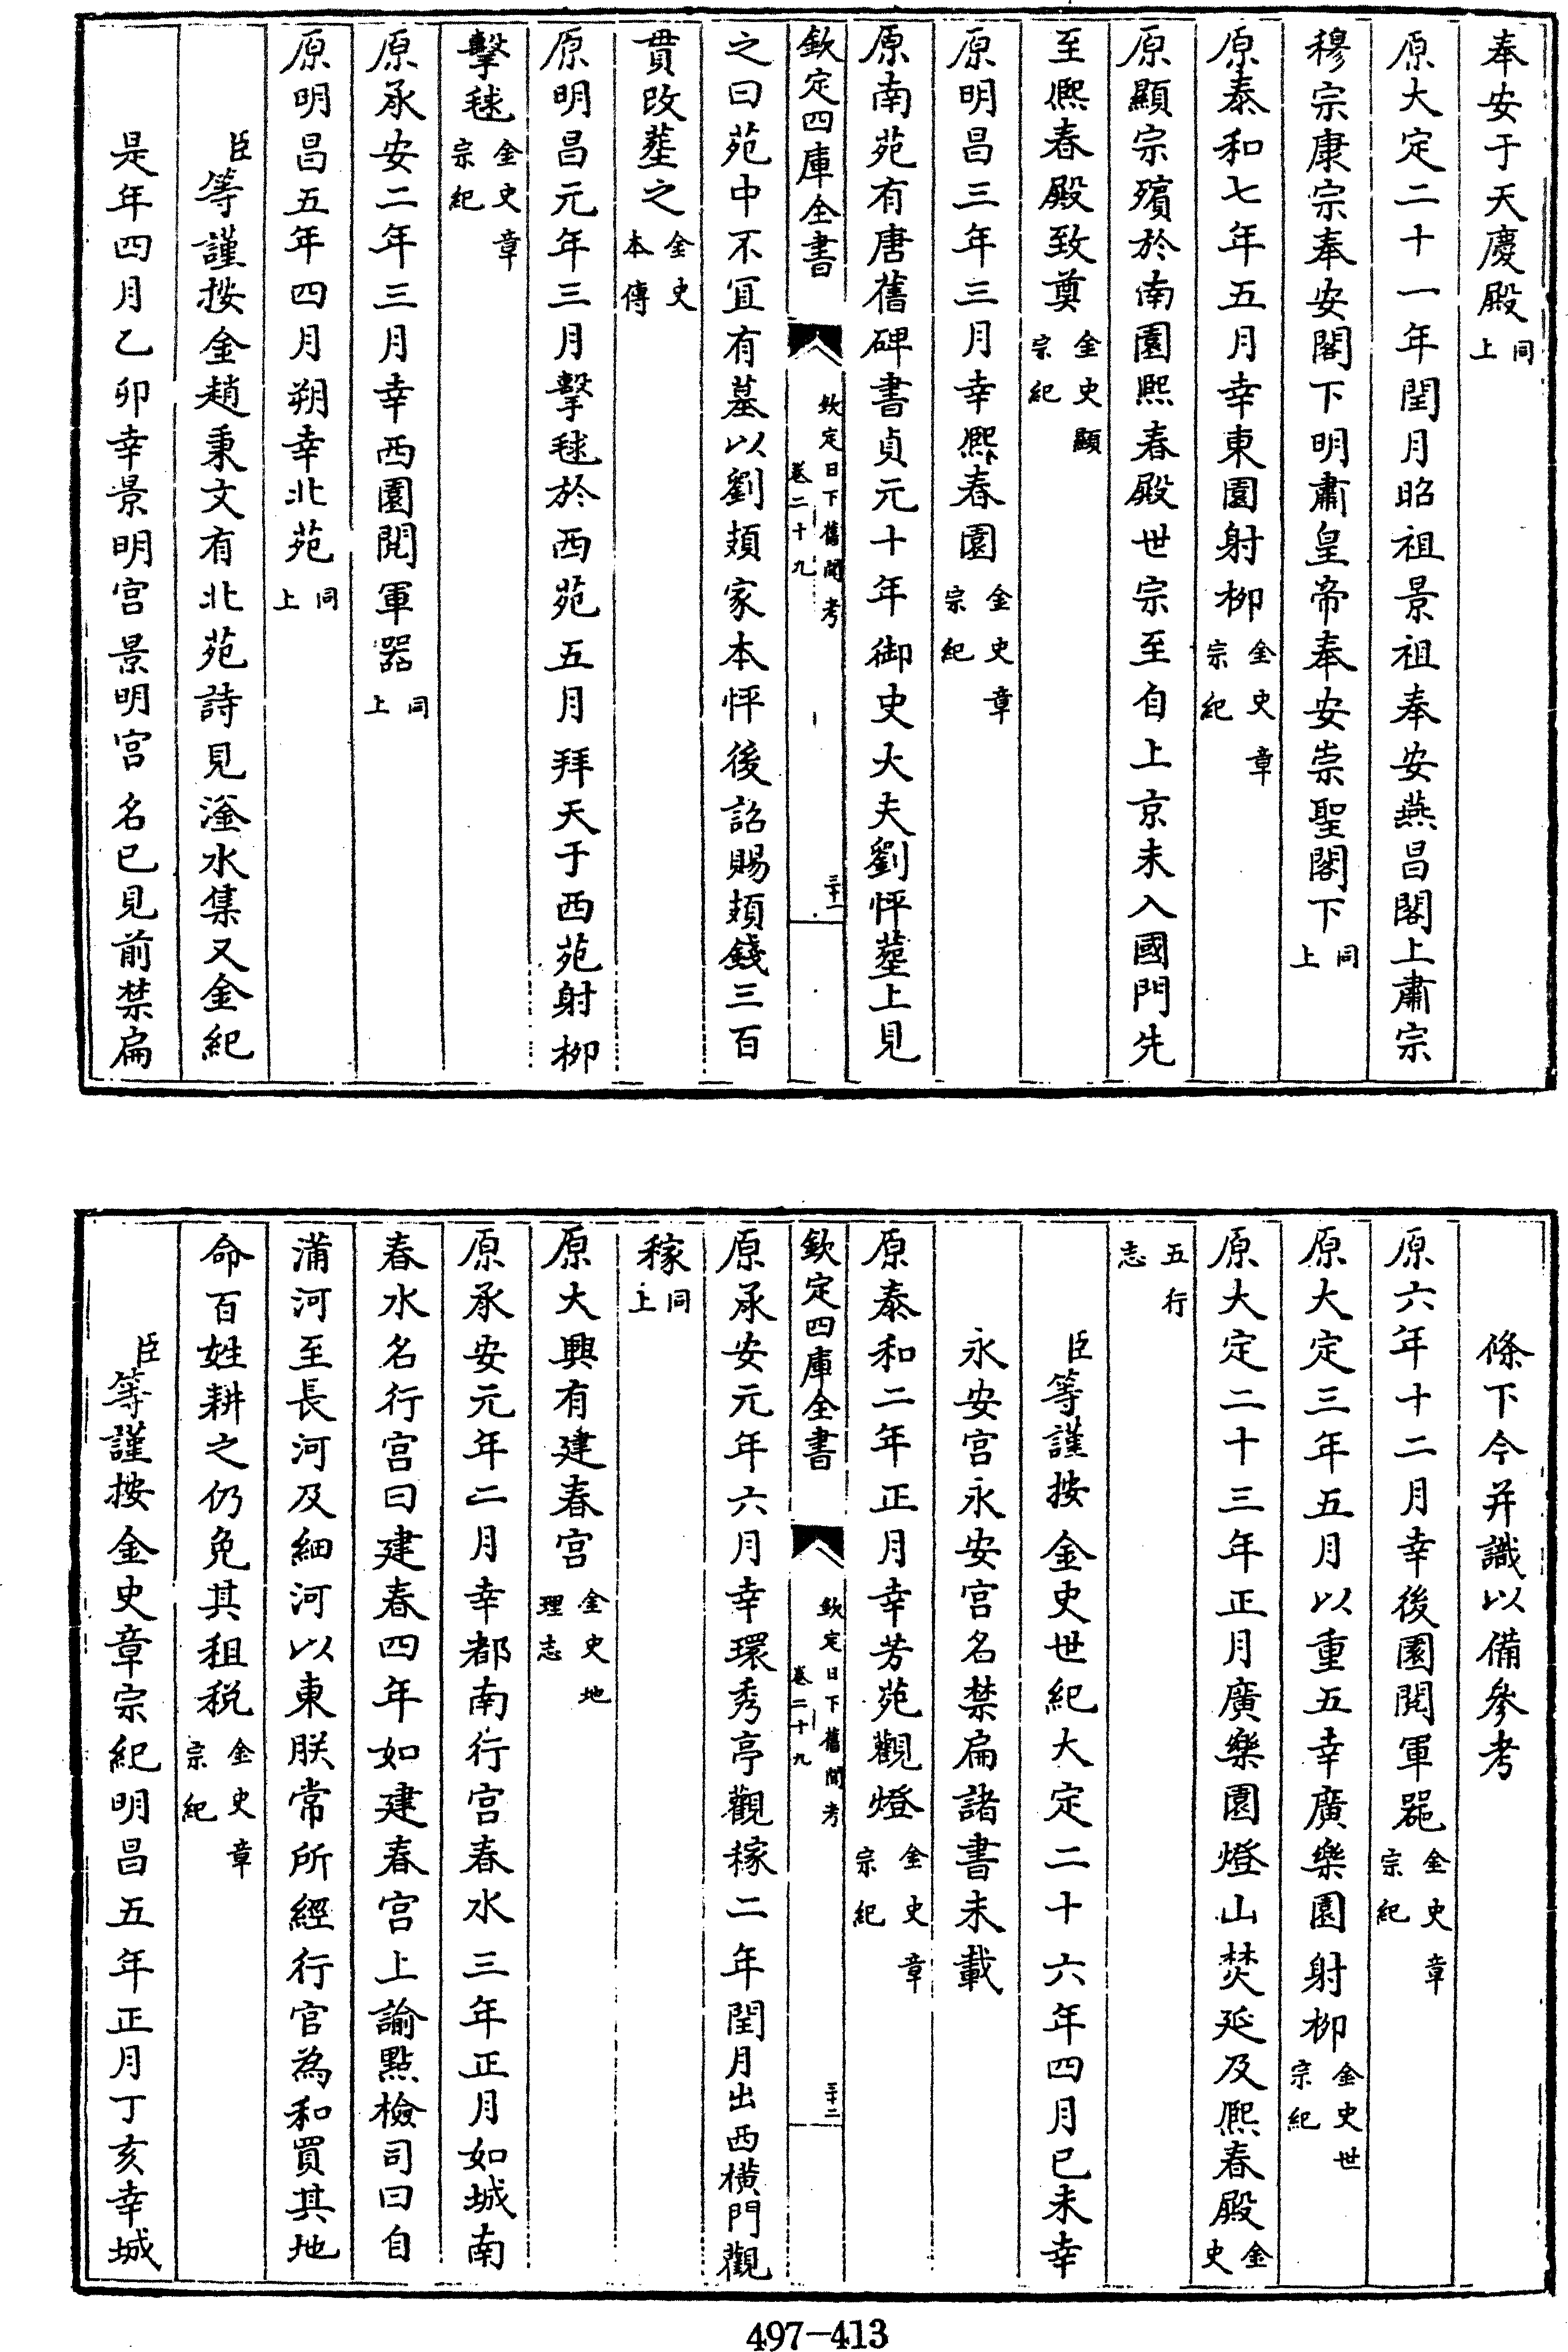 奉安于天慶殿同上
原大定二十一年閏月昭祖景祖奉安燕昌閣上肅宗
穆宗康宗奉安閣下明肅皇帝奉安崇聖閣下同上
原泰和七年五月幸東園射柳金史章宗紀
原顯宗殯於南園熙春殿世宗至自上京未入國門先
至熙春殿致奠金史顯宗紀
原明昌三年三月幸熙春園金史章宗紀
原南苑有唐舊碑書貞元十年御史大夫劉怦塟上見
欽定四庫全書
欽定日下舊聞考
卷二十九
三十一
之曰苑中不宜有墓以劉頍家本怦後詔賜頍錢三百
貫改塟之金史本傳
原明昌元年三月擊毬於西苑五月拜天于西苑射柳
擊毬金史章宗紀
原承安二年三月幸西園閱軍器同上
原明昌五年四月朔幸北苑同上
臣等謹按金趙秉文有北苑詩見滏水集又金紀
是年四月乙卯幸景明宫景明宫名已見前禁扁
條下今并識以備參考
原六年十二月幸後園閱軍器金史章宗紀
原大定三年五月以重五幸廣樂園射柳金史世宗紀
原大定二十三年正月廣樂園燈山焚延及熙春殿金史
五行志
臣等謹按金史世紀大定二十六年四月已未幸
永安宫永安宫名禁扁諸書未載
原泰和二年正月幸芳苑觀燈金史章宗紀
欽定四庫全書
欽定日下舊聞考
卷二十九
三十二
原承安元年六月幸環秀亭觀稼二年閏月出西横門觀
稼同上
原大興有建春宫金史地理志
原承安元年二月幸都南行宫春水三年正月如城南
春水名行宫曰建春四年如建春宫上諭點檢司曰自
蒲河至長河及細河以東朕常所經行官為和買其地
命百姓耕之仍免其租税金史章宗紀
臣等謹按金史章宗紀明昌五年正月丁亥幸城
497-413